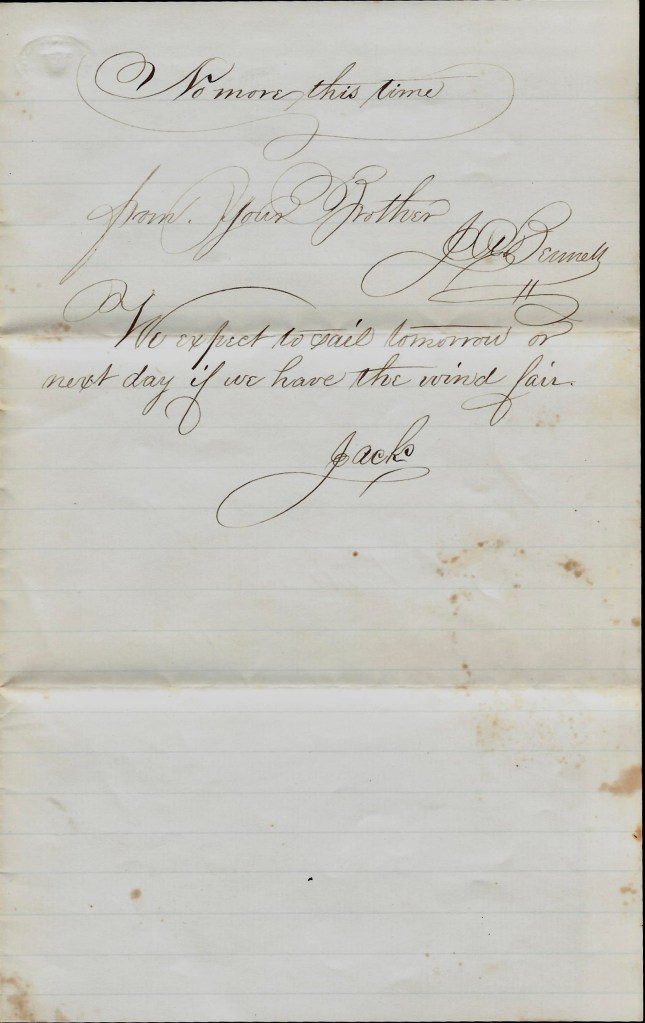 No more this time
from. Your Brother
Bennett
We expect to sail tomorrow or
next day if we have the wind fair.
Jack